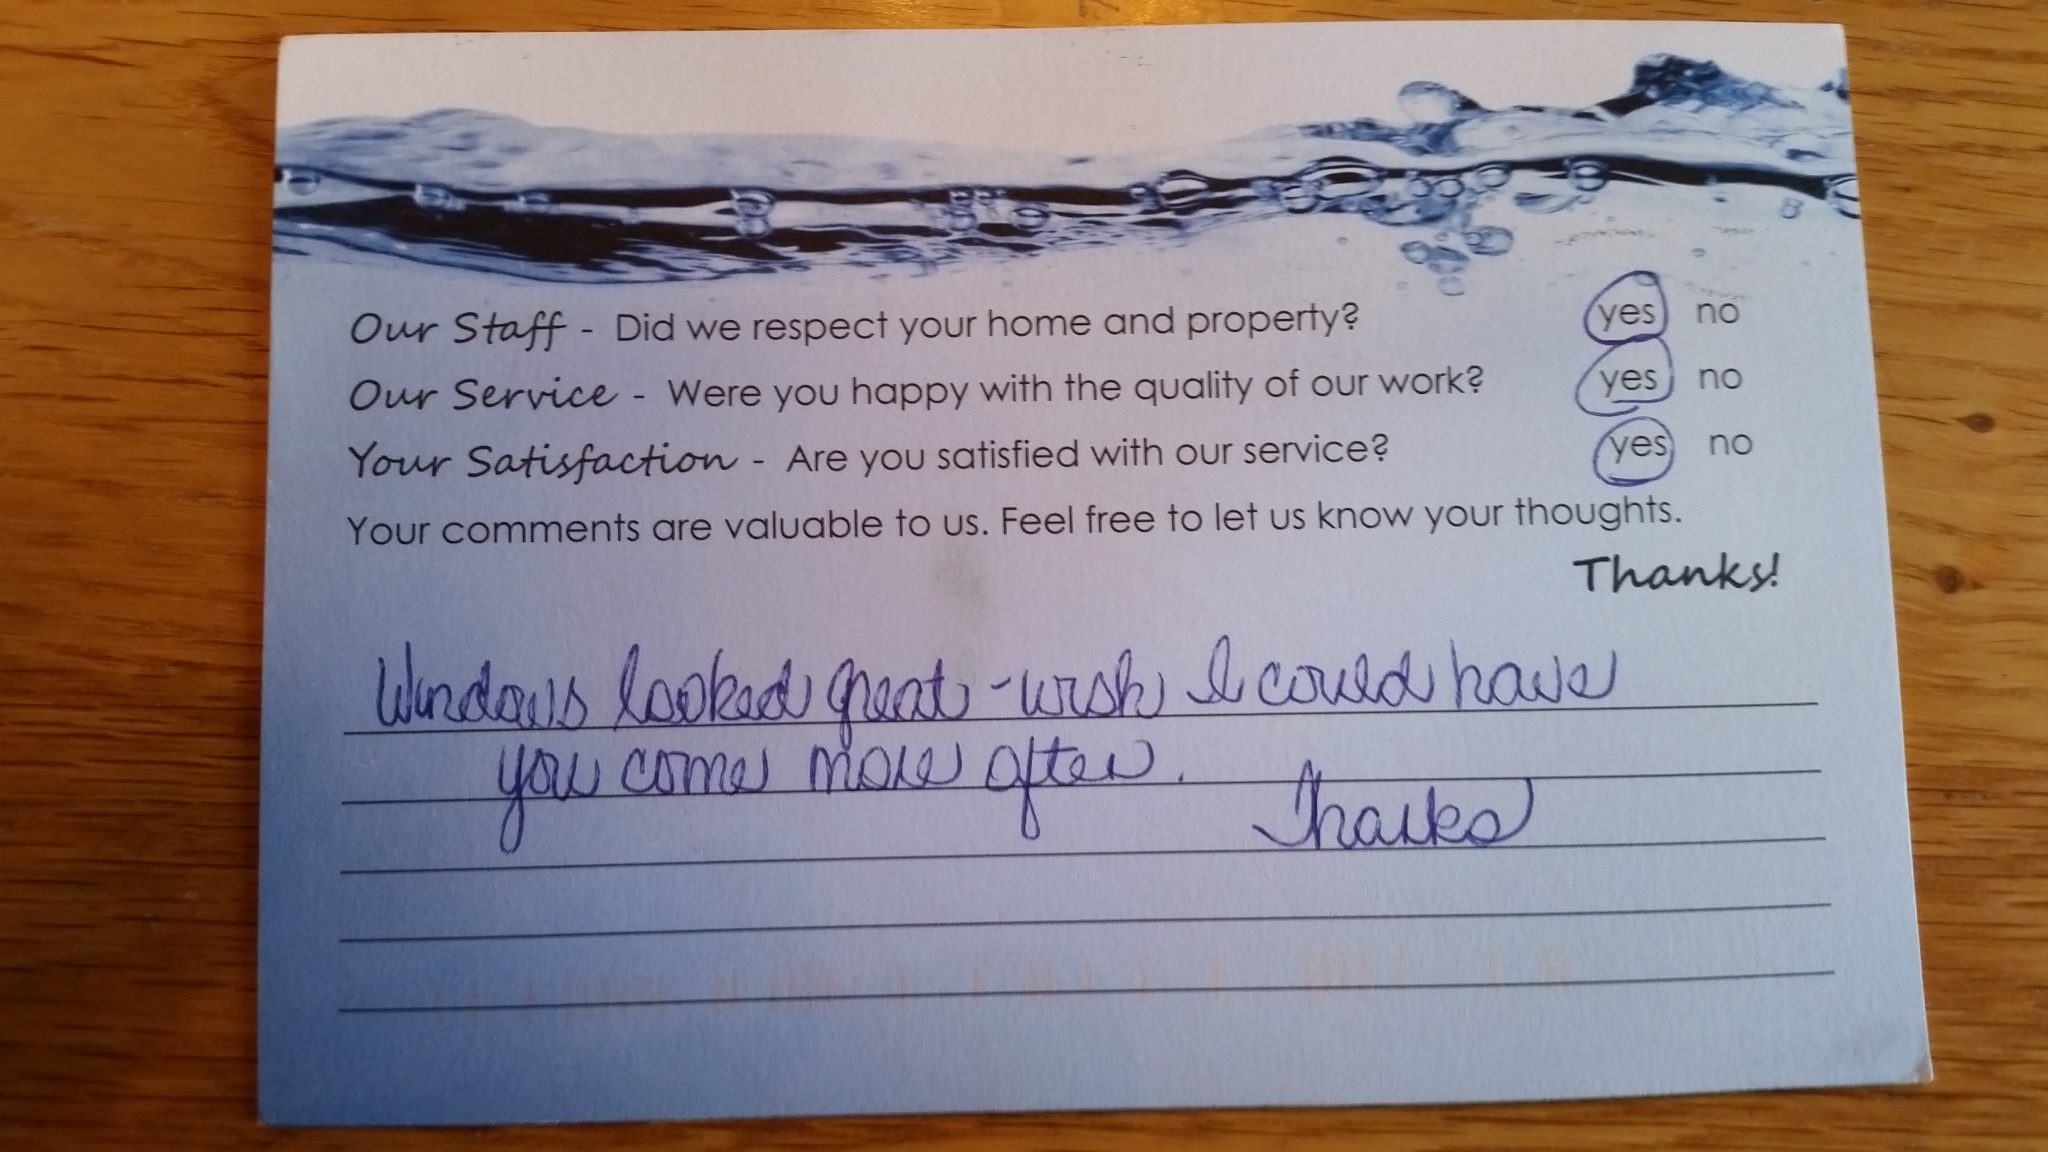 Our Staff - Did we respect your home and property? yes no
Our Service - Were you happy with the quality of our work? yes no
Your Satisfaction - Are you satisfied with our service? yes no
Your comments are valuable to us. Feel free to let us know your thoughts.
Thanks!
Windows looked great - wish I could have
you come more often.
Thanks